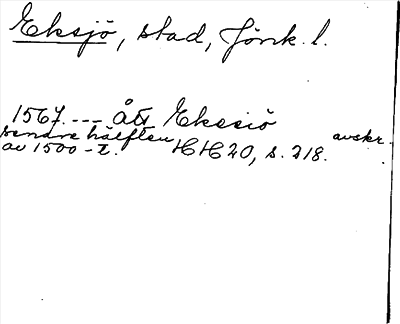 Eksjö, stad, Jönk. l.
1567. --- Ått Ekesiö
avskr.
senare hälften
av 1500-t. HH 20, s. 218.